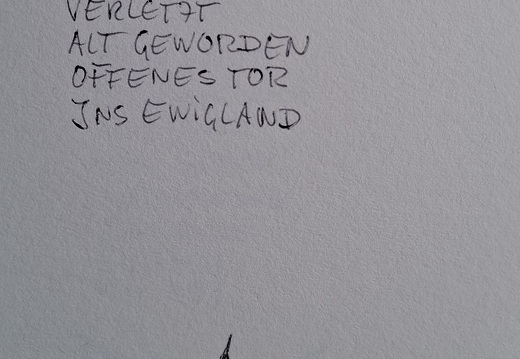 VERLETZT
ALT GEWORDEN
OFFENES TOR
INS EWIGLAND